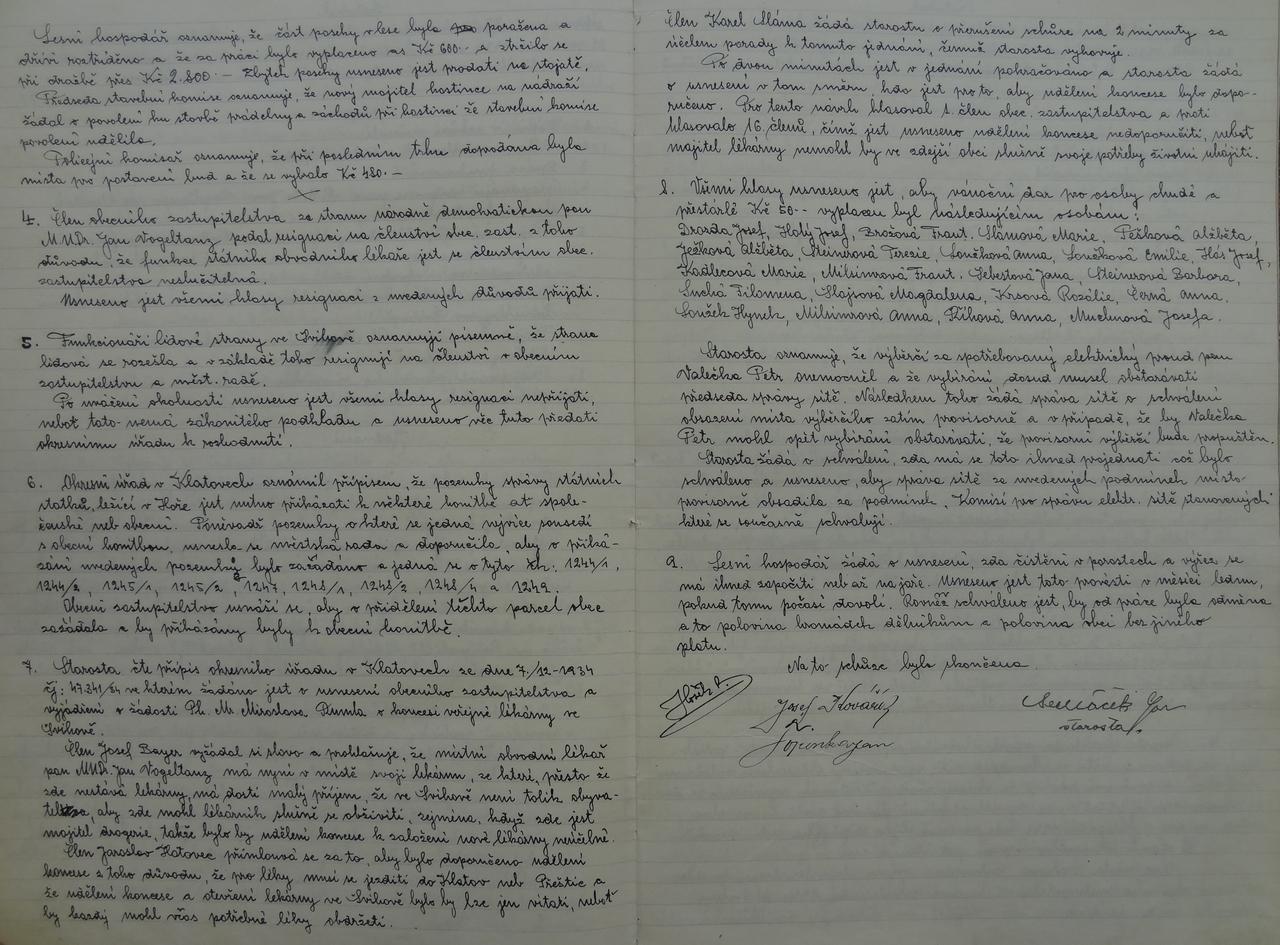 Lesní hospodář oznamuje, že část paseky v lese byla poražena a
dříví roztříděno a že za práci bylo vyplaceno as Kč 600·- a ztržilo se
při dražbě přes Kč 2.800·- Zbytek paseky usneseno jest prodati na stojatě.
Předseda stavební komise oznamuje, že nový majitel hostince na nádraží
žádal o povolení ku stavbě prádelny a záchodů při hostinci že stavební komise
povolení udělila.
Policejní komisař oznamuje, že při posledním trhu doprodána byla
místa pro postavení bud a že se vybralo Kč 480·-
4. Člen obecního zastupitelstva ze strany národně demokratickou pan
MUDr. Jan Vogeltanz podal resignaci na členství obec. zast. z toho
důvodu, že funkce státního obvodního lékaře jest se členstvím obec.
zastupitelstva neslučitelná.
Usneseno jest všemi hlasy resignaci z uvedených důvodů přijati.
5. Funkcionáři lidové strany ve Švihově oznamují písemně, že strana
lidová se rozešla a v základě toho resignují na členství v obecním
zastupitelstvu a měst. radě.
Po uvážení okolností usneseno jest všemi hlasy resignaci nepřijati,
neboť tato nemá zákonitého podkladu a usneseno věc tuto předati
okresnímu úřadu k rozhodnutí.
6. Okresní úřad v Klatovech oznámil přípisem, že pozemky správy státních
statků, ležící v Hoře jest nutno přikázati k některé honitbě ať spole-
čenské neb obecní. Poněvadž pozemky o které se jedná nejvíce sousedí
s obecní honitbou, usnesla se městská rada a doporučila, aby o přiká-
zání uvedených pozemků bylo zažádáno a jedná se o tyto kč: 1244/1,
1244/2, 1245/1, 1245/2, 1247, 1248/1, 1248/2, 1248/4 a 1249.
Obecní zastupitelstvo usnáší se, aby o přidělení těchto parcel obec
zažádala a by přikázány byly k obecní honitbě.
7. Starosta čte přípis okresního úřadu v Klatovech ze dne 7./12-1934
čj: 47.341/34 ve kterém žádáno jest o usnesení obecního zastupitelstva a
vyjádření o žádosti Ph. Mr. Miroslava Rumla o koncesi veřejné lékárny ve
Švihově.
Člen Josef Bayer vyžádal si slovo a prohlašuje, že místní obvodní lékař
pan MUDr. Jan Vogeltanz má nyní v místě svoji lékárnu, ze které, přesto že
zde nestává lékárny, má dosti malý příjem, že ve Švihově není tolik obyva-
telstva, aby zde mohl lékárník slušně se obživiti, zejména, když zde jest
majitel drogerie, takže bylo by udělení koncese k založení nové lékárny neúčelné.
Člen Jaroslav Hatovec přimlouvá se za to, aby bylo doporučeno udělení
koncese z toho důvodu, že pro léky musí se jezditi do Klatov neb Přeštic a
že udělení koncese a otevření lékárny ve Švihově bylo by lze jen vítati, neboť
by každý mohl včas potřebné léky obdržeti.
Člen Karel Sláma žádá starostu o přerušení schůze na 2 minuty za
účelem porady k tomuto jednání, čemuž starosta vyhovuje.
Po dvou minutách jest v jednání pokračováno a starosta žádá
o usnesení v tom směru, kdo jest pro to, aby udělení koncese bylo dopo-
ručeno. Pro tento návrh hlasoval 1. člen obec. zastupitelstva a proti
hlasovalo 16 členů, čímž jest usneseno udělení koncese nedoporučiti, neboť
majitel lékárny nemohl by ve zdejší obci slušně svoje potřeby životní uhájiti.
8. Všemi hlasy usneseno jest, aby vánoční dar pro osoby chudé a
přestárlé Kč 50·- vyplacen byl následujícím osobám:
Drozda Josef, Holý Josef, Brožová Frant. Slámová Marie, Pešková Alžběta,
Ježková Alžběta, Steinerová Terezie, Součková Anna, Součková Emilie, Hás Josef,
Kadlecová Marie, Milsimrová Frant. Šebestová Jana, Steinerová Barbora,
Suchá Filomena, Šlajsová Magdalena, Krsová Rozálie, Černá Anna,
Soužek Hynek, Milsimrová Anna, Říhová Anna, Muchnová Josefa.
Starosta oznamuje, že výběrčí za spotřebovaný elektrický proud pan
Valečka Petr onemocněl a že vybírání dosud musel obstarávati
předseda správy sítě. Následkem toho žádá správa sítě o schválení
obsazení místa výběrčího zatím provisorně a v případě, že by Valečka
Petr mohl opět vybírání obstarávati, že provisorní výběrčí bude propuštěn.
Starosta žádá o schválení, zda má se toto ihned projednati což bylo
schváleno a usneseno, aby správa sítě za uvedených podmínek místo
provisorně obsadila za podmínek, Komisí pro správu elektr. sítě stanovených
které se současně schvalují.
9. Lesní hospodář žádá o usnesení, zda čistění v porostech a výřez se
má ihned započíti neb až na jaře. Usneseno jest toto provésti v měsíci lednu,
pokud tomu počasí dovolí. Rovněž schváleno jest, by od práce byla odměna
a to polovina hromádek dělníkům a polovina obci bez jiného
platu.
Na to schůze byla skončena.
Josef Kovářík
starosta